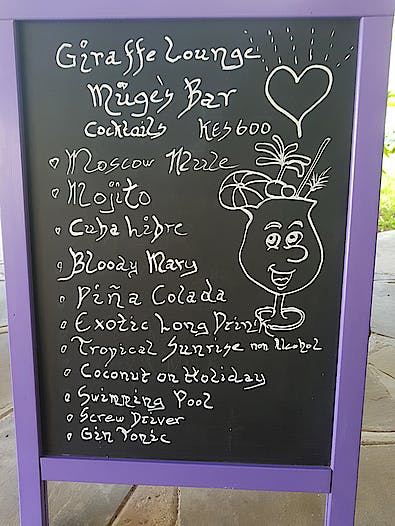 Giraffe Lounge
Müge's Bar
Cocktails KES600
Moscow Mule
Mojito
Cuba Libre
Bloody Mary
Piña Colada
Exotic Long Drink
Tropical Sunrise non Alcohol
Coconut on Holiday
Swimming Pool
Screw Driver
Gin Tonic